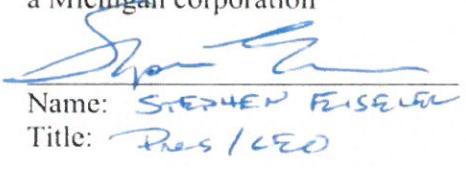 a Michigan corporation
Name: STEPHEN
Title: Pres / CEO